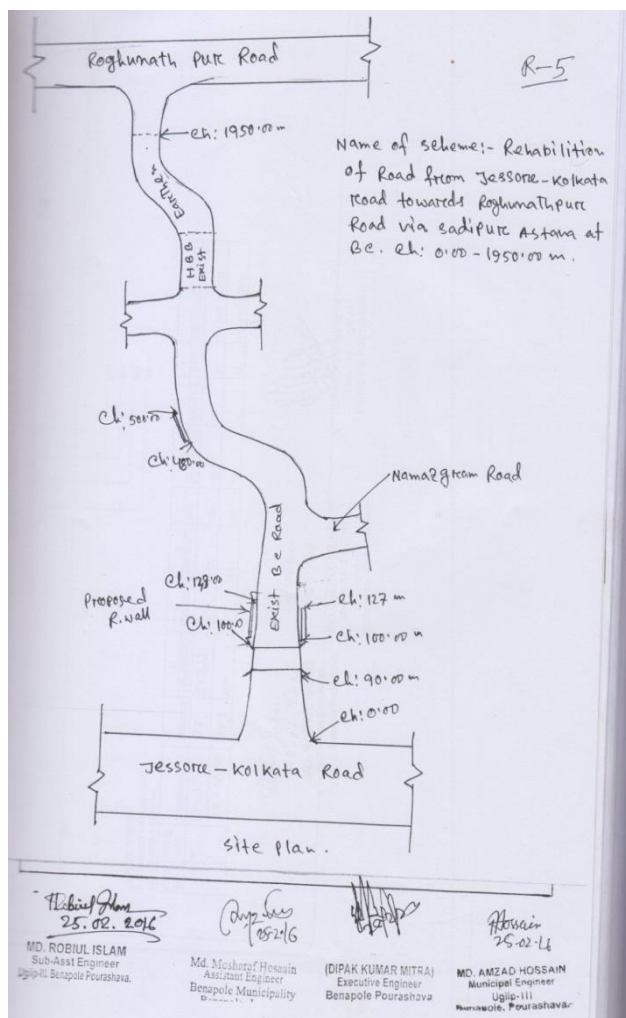 Roghunath Pur Road
R-5
ch: 1950.00 m
Name of scheme:- Rehabilition
of Road from Jessore-Kolkata
Road towards Roghunathpur
Road via sadipur Astana at
BC. ch: 0.00 - 1950.00 m.
Earthen
HBB
Exist
ch: 500.00
ch: 480.00
Namazgram Road
Exist BC Road
Proposed
R. wall
ch: 100.00
ch: 127 m
ch: 100.00 m
ch: 90.00 m
ch: 0.00
Jessore - Kolkata Road
site plan.
25.02.2016
25-2-16
Hossain
25-02-16
MD. ROBIUL ISLAM
Sub-Asst Engineer
Ugiip-III. Benapole Pourashava.
Md. Mosharaf Hossain
Assistant Engineer
Benapole Municipality
(DIPAK KUMAR MITRA)
Executive Engineer
Benapole Pourashava
MD. AMZAD HOSSAIN
Municipal Engineer
Ugiip-III
Benapole, Pourashava.